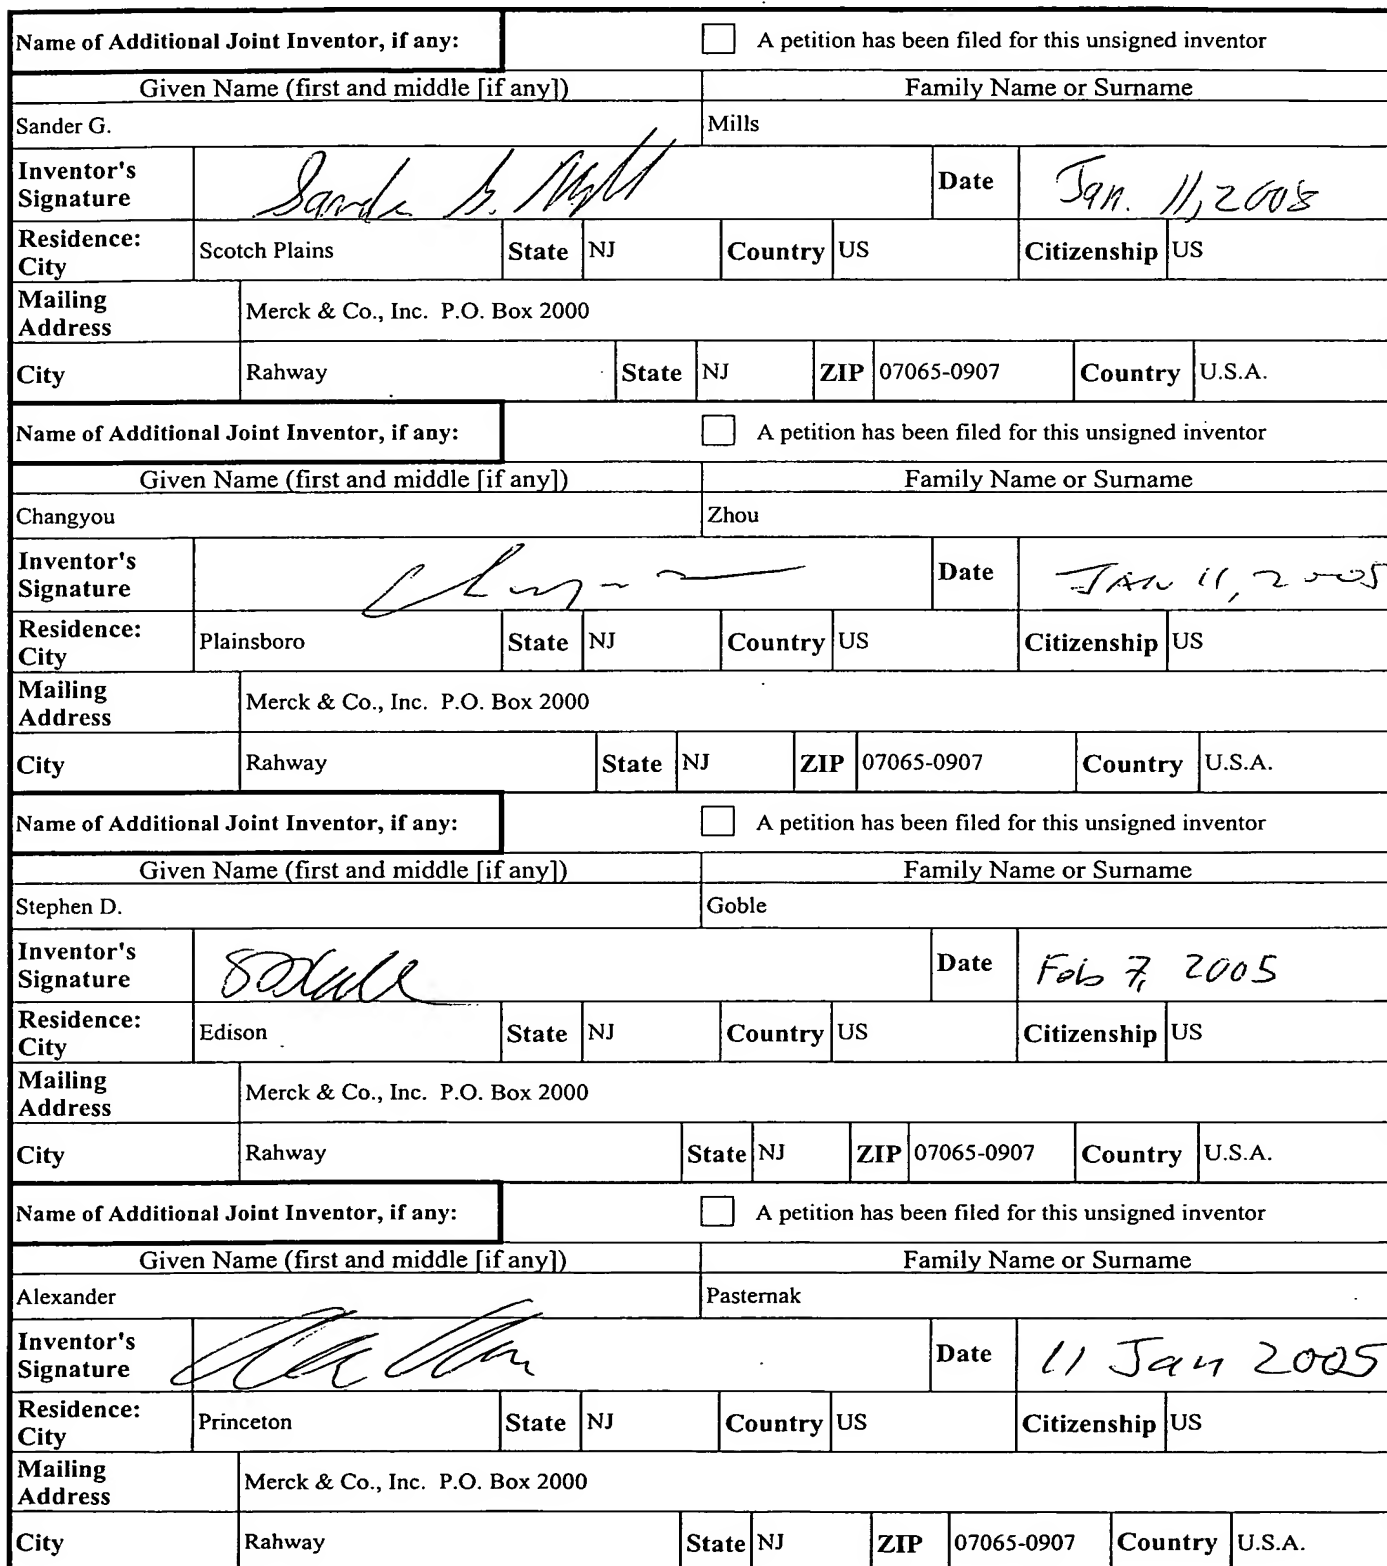 Name of Additional Joint Inventor, if any: A petition has been filed for this unsigned inventor
Given Name (first and middle [if any]) Family Name or Surname
Sander G. Mills
Inventor's Signature Date Jan. 11, 2008
Residence: City Scotch Plains State NJ Country US Citizenship US
Mailing Address Merck & Co., Inc. P.O. Box 2000
City Rahway State NJ ZIP 07065-0907 Country U.S.A.
Name of Additional Joint Inventor, if any: A petition has been filed for this unsigned inventor
Given Name (first and middle [if any]) Family Name or Surname
Changyou Zhou
Inventor's Signature Date JAN 11, 2005
Residence: City Plainsboro State NJ Country US Citizenship US
Mailing Address Merck & Co., Inc. P.O. Box 2000
City Rahway State NJ ZIP 07065-0907 Country U.S.A.
Name of Additional Joint Inventor, if any: A petition has been filed for this unsigned inventor
Given Name (first and middle [if any]) Family Name or Surname
Stephen D. Goble
Inventor's Signature Date Feb 7, 2005
Residence: City Edison State NJ Country US Citizenship US
Mailing Address Merck & Co., Inc. P.O. Box 2000
City Rahway State NJ ZIP 07065-0907 Country U.S.A.
Name of Additional Joint Inventor, if any: A petition has been filed for this unsigned inventor
Given Name (first and middle [if any]) Family Name or Surname
Alexander Pasternak
Inventor's Signature Date 11 Jan 2005
Residence: City Princeton State NJ Country US Citizenship US
Mailing Address Merck & Co., Inc. P.O. Box 2000
City Rahway State NJ ZIP 07065-0907 Country U.S.A.